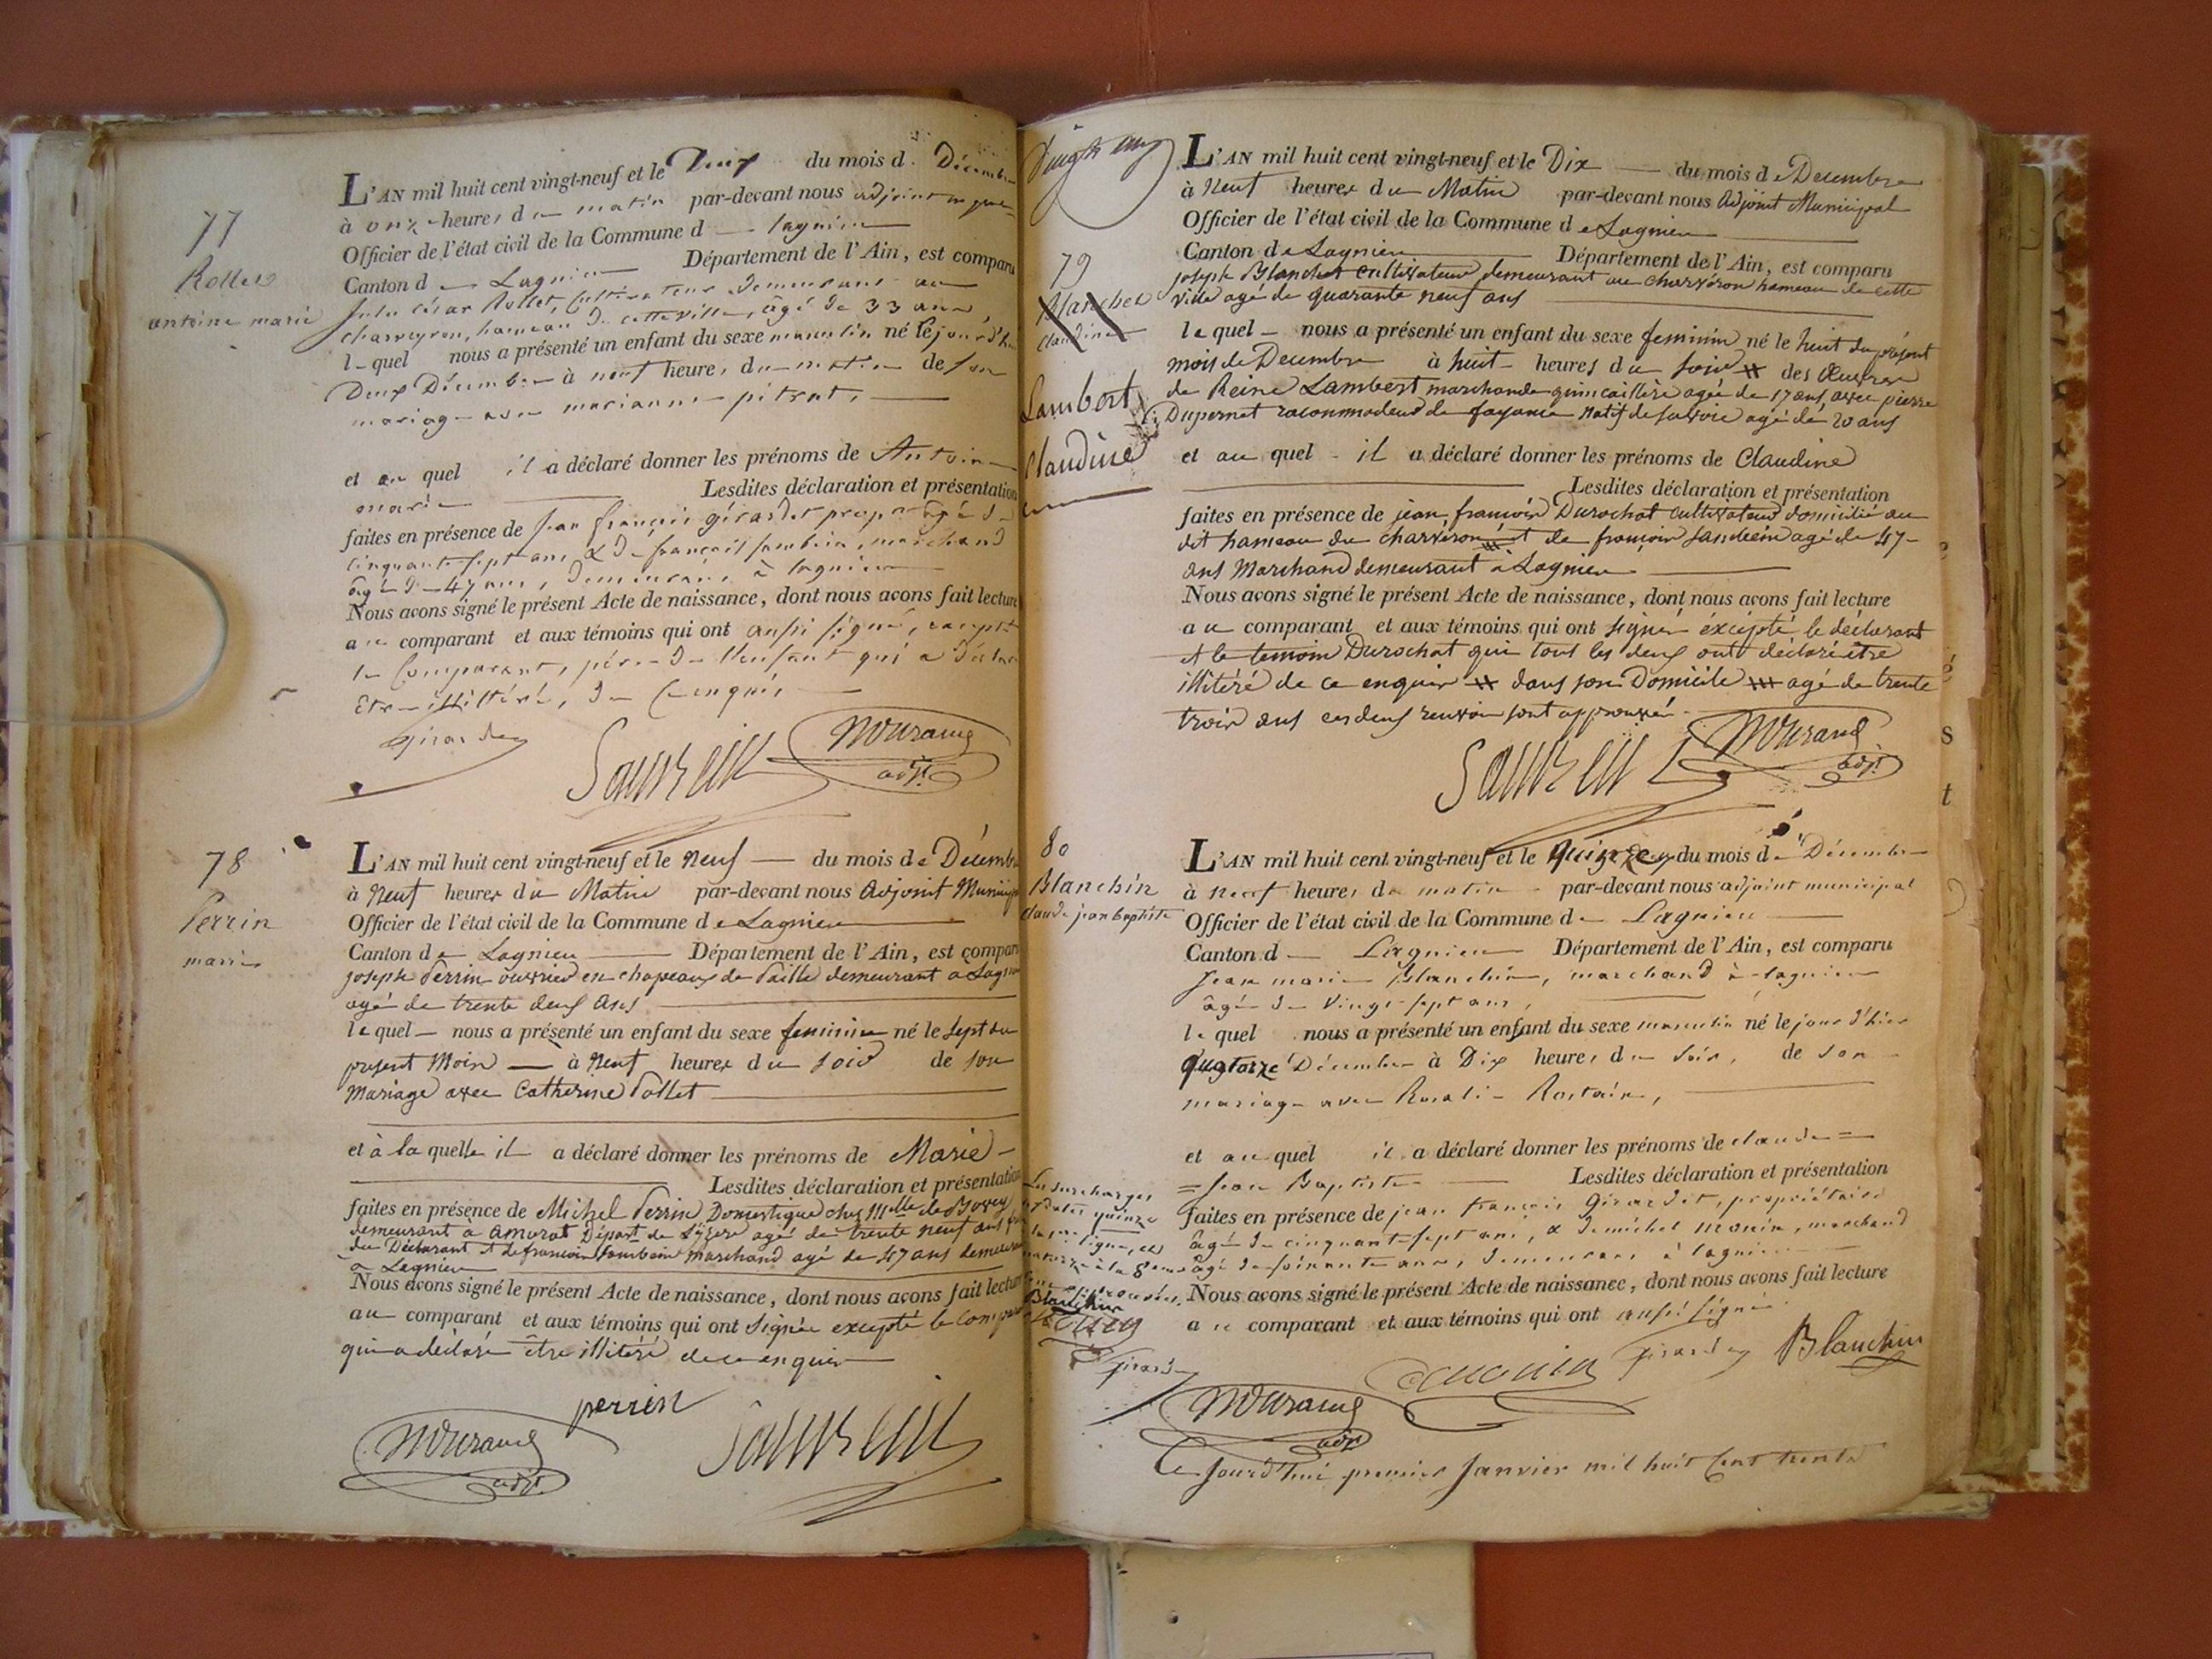 77
Rollet
antoine marie
L'AN mil huit cent vingt-neuf et le Deux du mois d. Décembre
à onze heures du matin par-devant nous adjoint
Officier de l'état civil de la Commune d — Lagnieu
Canton de Lagnieu Département de l'Ain, est comparu
Jules César Rollet, Cultivateur demeurant au
Charveyron, hameau de cette ville, âgé de 33 ans,
lequel nous a présenté un enfant du sexe masculin né le jourd'hui
Deux Décembre à neuf heures du matin de son
mariage avec marianne pitrat,
et au quel il a déclaré donner les prénoms de Antoine
marie Lesdites déclaration et présentation
faites en présence de Jean françois girardet prop.re âgé de
cinquante sept ans, & de françois sambein, marchand
âgé de 47 ans, demeurant à lagnieu
Nous avons signé le présent Acte de naissance, dont nous avons fait lecture
au comparant et aux témoins qui ont aussi signé, excepté
le Comparant, père de l'enfant qui a déclaré
être illittéré, de ce enquis
girardet
Sambein
Mourand
adjt
78
Perrin
marie
L'AN mil huit cent vingt-neuf et le Neuf — du mois de Décembre
à Neuf heures du Matin par-devant nous Adjoint Municipal
Officier de l'état civil de la Commune de Lagnieu
Canton de Lagnieu Département de l'Ain, est comparu
joseph Perrin ouvrier en chapeaux de Paille demeurant a Lagnieu
agé de trente deux Ans
lequel — nous a présenté un enfant du sexe feminin né le Sept du
present Mois — à Neuf heures du soir de son
Mariage avec Catherine Pollet
et à la quelle il a déclaré donner les prénoms de Marie —
Lesdites déclaration et présentation
faites en présence de Michel Perrin Domestique chez Mlle de Bovey
demeurant à Amorat Départ. de L'Izere agé de trente neuf ans
du Déclarant et de francois sambein marchand agé de 47 ans demeurant
a Lagnieu
Nous avons signé le présent Acte de naissance, dont nous avons fait lecture
au comparant et aux témoins qui ont Signée excepté le comparant
qui a déclaré être illitéré de ce enquis
perrin
Mourand
adjt.
Sambein
Vingt
79
Blanchet
claudine
Lambert
Claudine
L'AN mil huit cent vingt-neuf et le Dix — du mois de Decembre
à Neuf heures du Matin par-devant nous Adjoint Municipal
Officier de l'état civil de la Commune de Lagnieu
Canton de Lagnieu Département de l'Ain, est comparu
joseph Blanchet cultivateur demeurant au charvéron hameau de cette
ville agé de quarante neuf ans
lequel — nous a présenté un enfant du sexe feminin né le huit du présent
mois de Decembre à huit heures du soir # des Œuvres
de Reine Lambert marchande quincaillère agée de 17 ans avec pierre
Dupernet racommodeur de fayance Natif de savoie agé de 20 ans
et au quel - il a déclaré donner les prénoms de Claudine
Lesdites déclaration et présentation
faites en présence de jean françois Durochat cultivateur domicilié au
dit hameau du charvéron et de françois sambein agé de 47
ans Marchand demeurant à Lagnieu
Nous avons signé le présent Acte de naissance, dont nous avons fait lecture
au comparant et aux témoins qui ont signé éxcépté le déclarant
et le temoin Durochat qui tout les deux ont déclaré être
illitéré de ce enquis # dans son Domicile # agé de trente
trois ans ces deux renvois sont approuvés
Sambein
Mourand
adjt
80
Blanchin
claude jean baptiste
L'AN mil huit cent vingt-neuf et le Quinze du mois de Décembre
à neuf heures du matin par-devant nous adjoint municipal
Officier de l'état civil de la Commune de Lagnieu
Canton d — Lagnieu Département de l'Ain, est comparu
Jean marie Blanchin, marchand à lagnieu
âgé de vingt sept ans,
lequel nous a présenté un enfant du sexe masculin né le jour d'hier
Quatorze Décembre à Dix heures du soir, de son
mariage avec Rosalie Rostain,
et au quel il a déclaré donner les prénoms de claude =
= Jean Baptiste Lesdites déclaration et présentation
faites en présence de jean françois Girardet, propriétaire
âgé de cinquante sept ans, & de michel monin, marchand
âgé de soixante ans, demeurant à lagnieu
Nous avons signé le présent Acte de naissance, dont nous avons fait lecture
au comparant et aux témoins qui ont aussi signé.
Les surcharges
quinze
ligne,
approuvées.
Blanchin
Girardet
Monin
girardet
Blanchin
Mourand
adjt
Ce Jourd'hui premier Janvier mil huit Cent trente